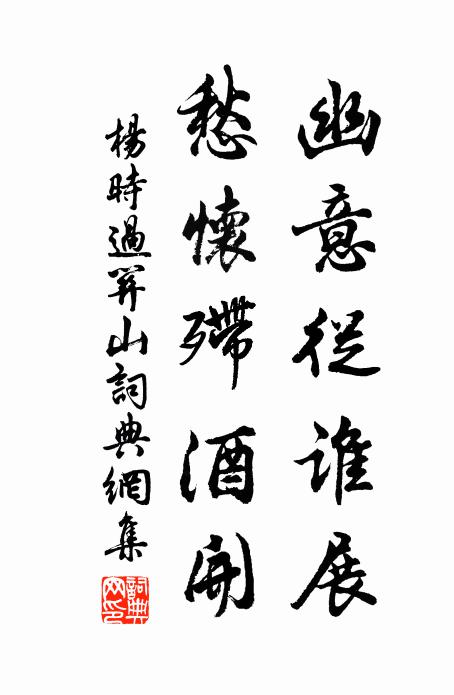 幽意從誰展
愁懷殢酒開
楊時過關山詞典網集
詞典
网印